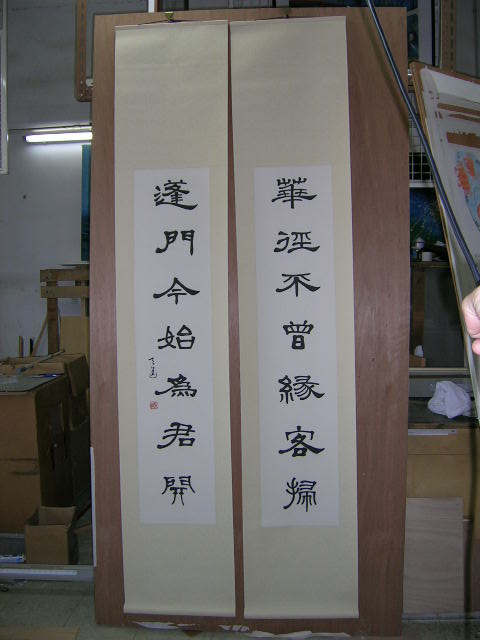 華徑不曾緣客掃
蓬門今始為君開